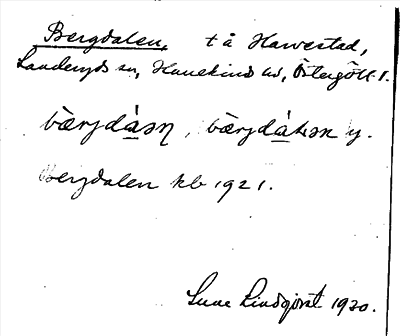 Bergdalen, t å Hawestad,
Landeryds sn, Hanekinds hd, Östergötl. l.
bærjdàəɳ, bærjdàʟən y.
Bergdalen kb 1921.
Sune Lindqvist 1930.